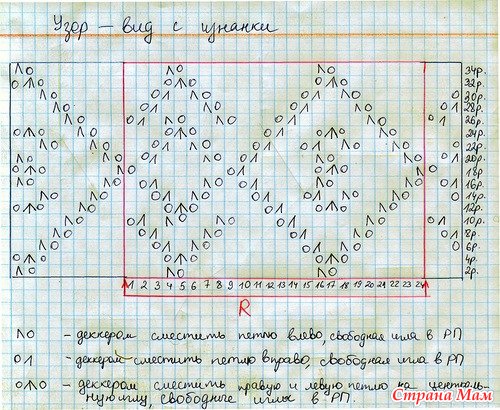 Узор – вид с изнанки
34р.
32р.
30р.
28р.
26р.
24р.
22р.
20р.
18р.
16р.
14р.
12р.
10р.
8р.
6р.
4р.
2р.
1 2 3 4 5 6 7 8 9 10 11 12 13 14 15 16 17 18 19 20 21 22 23 24
R
ЛО – деккером сместить петлю влево, свободная игла в РП
О1 – деккером сместить петлю вправо, свободная игла в РП
ОЛО – деккером сместить правую и левую петлю на централь-
ную иглу, свободные иглы в РП.
Страна Мам